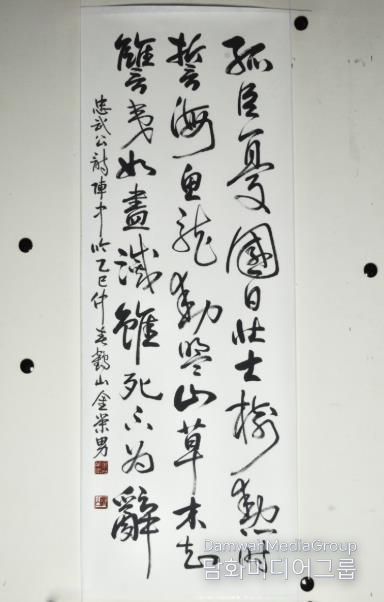 孤臣憂國日壯士樹勳時
誓海魚龍動盟山草木知
讐夷如盡滅雖死不为辭
忠武公詩陣中吟乙巳仲春鶴山金榮男
DamwahMediaGroup
담화미디어그룹